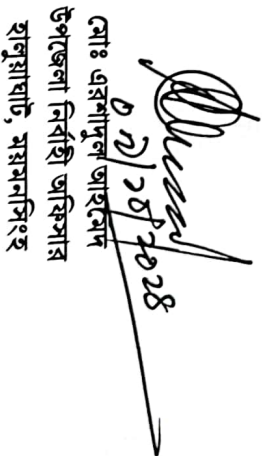 ০৯/১৫/২০২৪
মোঃ এরশাদুল আহমেদ
উপজেলা নির্বাহী অফিসার
হালুয়াঘাট, ময়মনসিংহ